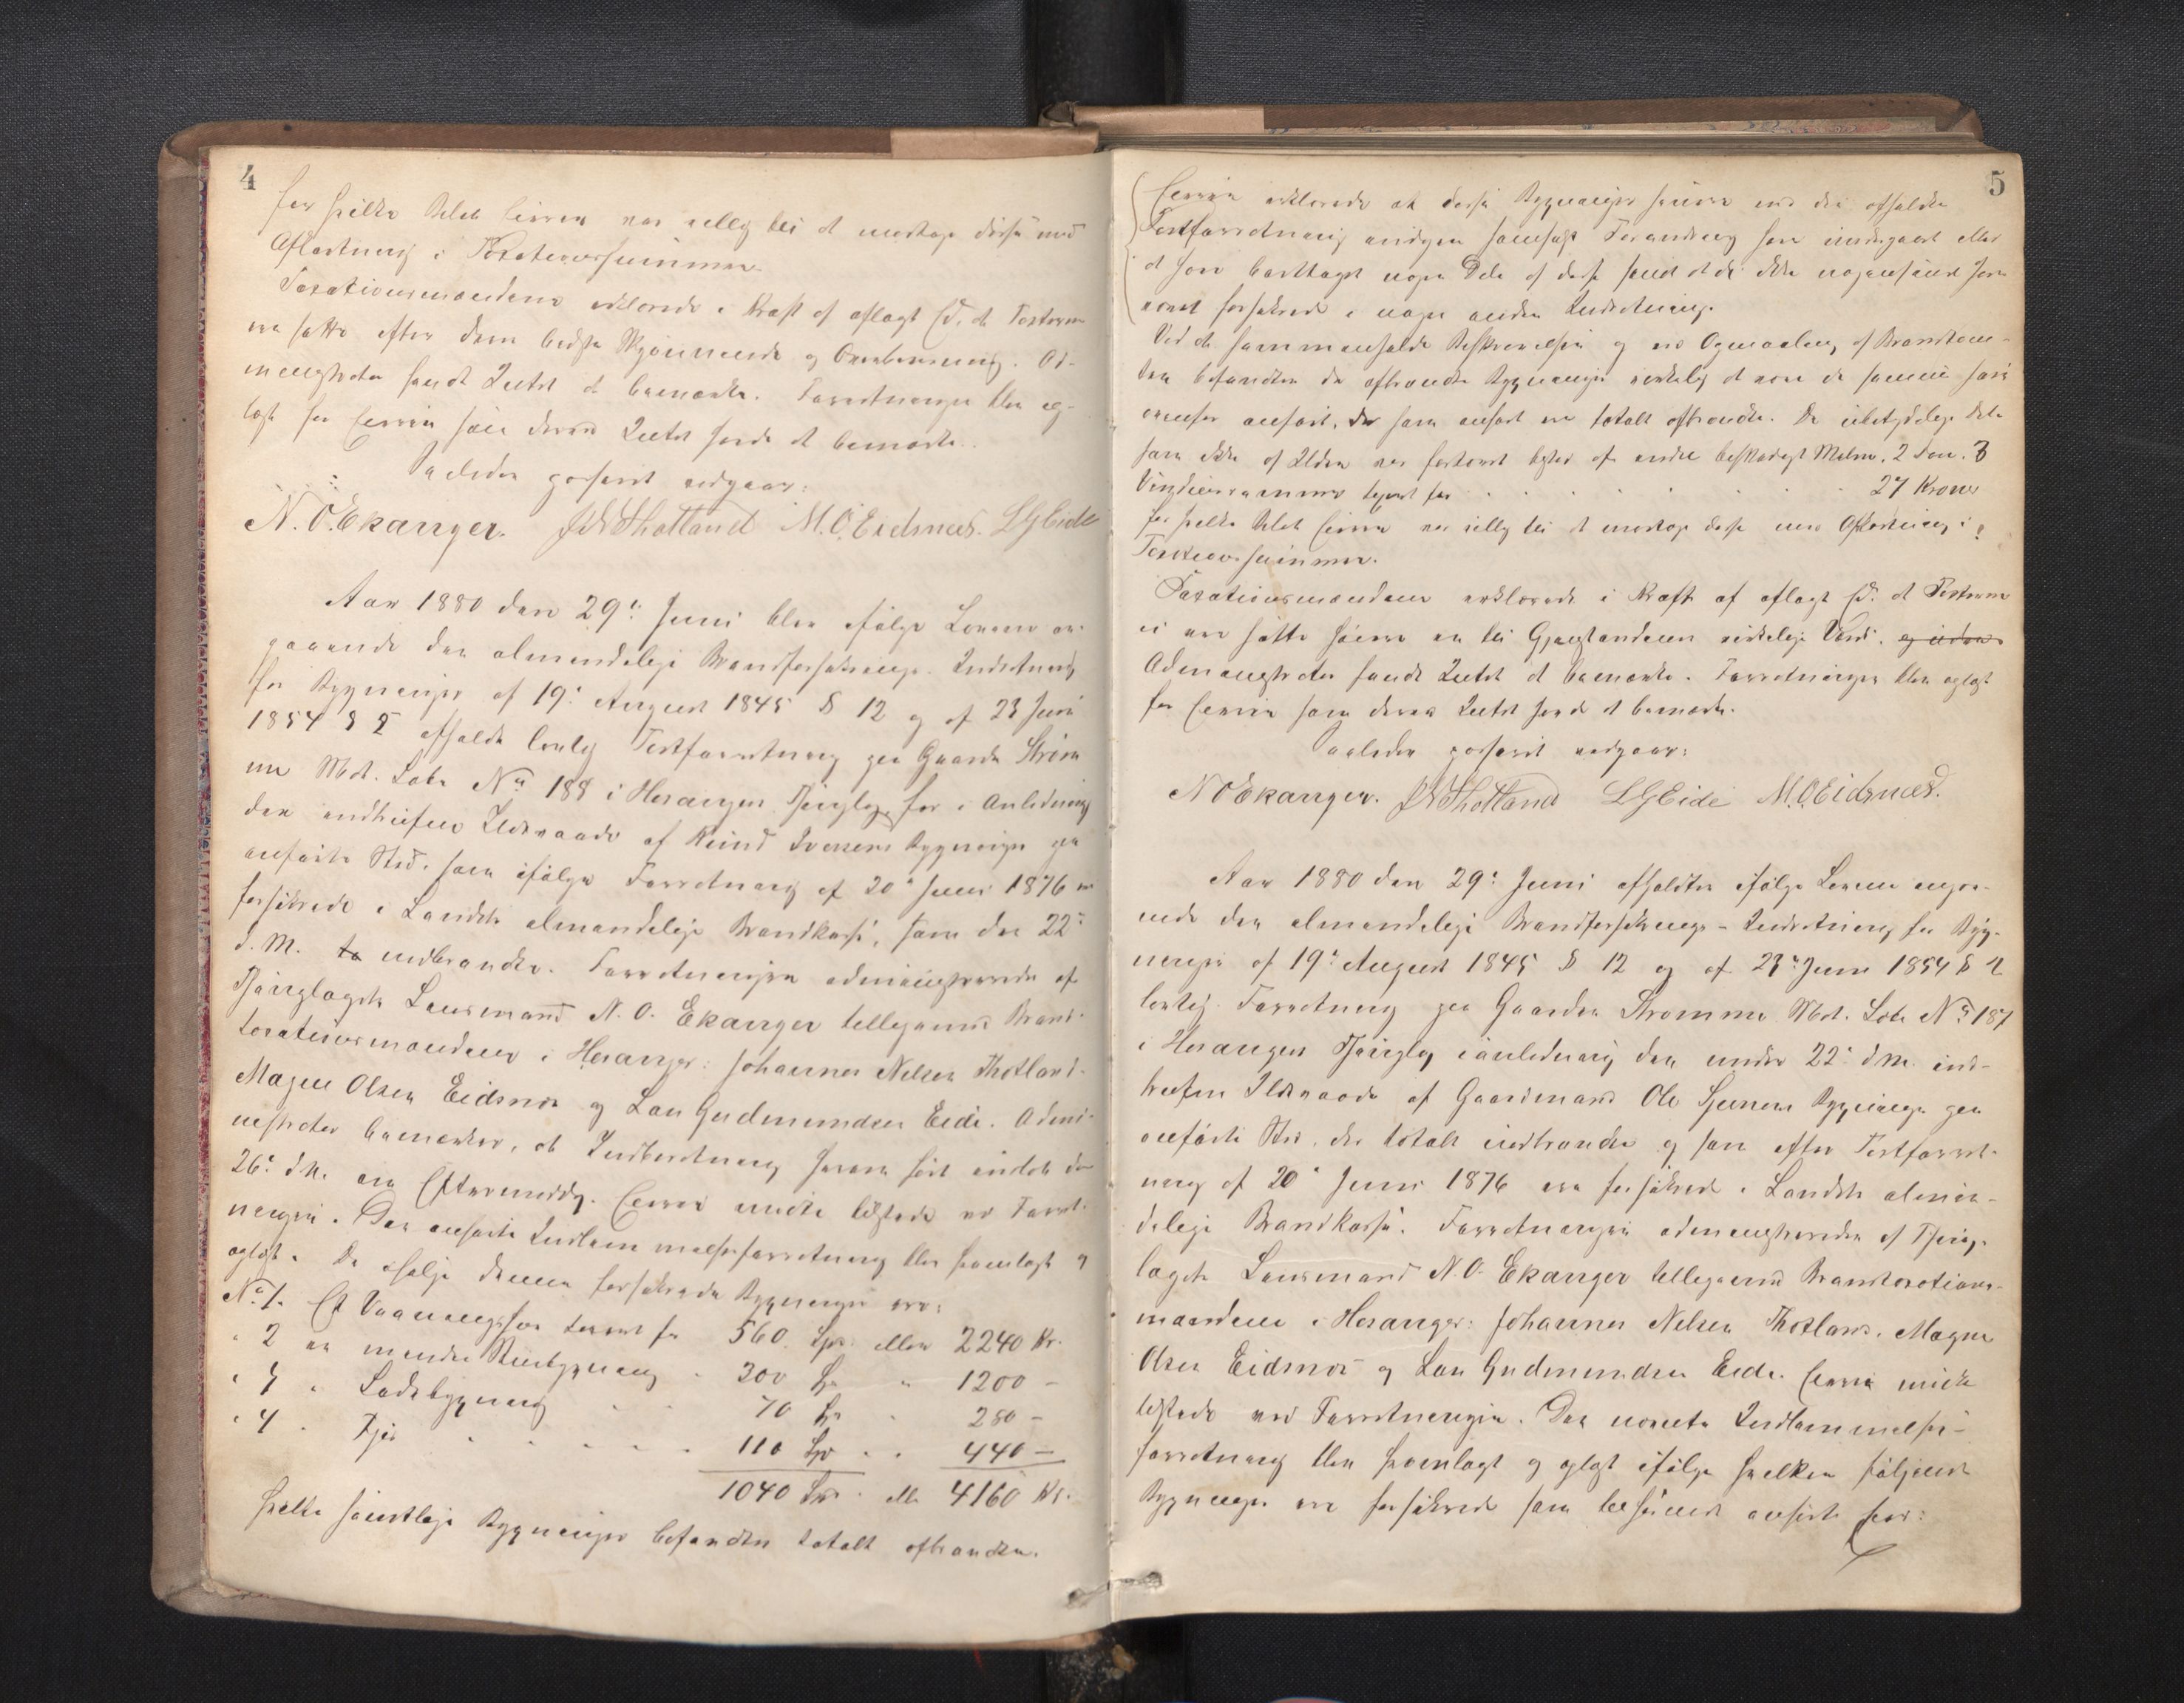 4
for hvilke Beløb Eieren var villig til at modtage disse med
Afkortning i Taxationssummen.
Taxationsmændene erklærede i Kraft af aflagt Ed, at Taxterne
ere satte efter deres bedste Skjønnende og Overbevisning. Ad-
ministrator fandt Intet at bemærke. Forretningen blev op-
læst for Eieren som derved Intet havde at bemærke.
Saaledes passeret vedgaar:
N. O. Ekanger. J N Thotland M. O. Eidsnes. L G Eide
Aar 1880 den 29de Juni blev ifølge Lovene an-
gaaende den almindelige Brandforsikrings-Indretning
for Bygninger af 19de August 1845 § 12 og af 23 Juni
1854 § 2 afholdt lovlig Taxtforretning paa Gaarden Strøm
me Mat. Løbe No 188 i Hosanger Thinglag, for i Anledning
den indtrufne Ildsvaade af Knud Iversens Bygninger paa
anførte Sted, som ifølge Forretning af 20de Juni 1876 er
forsikrede i Landets almindelige Brandkasse, som den 22de
d. M. nedbrændte. Forretningen administreredes af
Thinglagets Lensmand N. O. Ekanger tilligemed Brand-
taxationsmændene i Hosanger: Johannes Nilsen Thotland,
Magne Olsen Eidsnes og Lars Gudmundsen Eide. Admi-
nistrator bemærker, at Indberetning herom først indløb den
26de d. M. om Eftermiddag. Eieren mødte tilstede ved Forret-
ningen. Den anførte Indlemmelsesforretning blev fremlagt og
oplæst. De ifølge denne forsikrede Bygninger ere:
No 1. Et Vaaningshus taxeret for 560 Spd. eller 2240 Kr.
" 2 en mindre Stuebygning " 300 Spd " 1200 –
" 3 " Ladebygning " " 70 Spd " 280 –
" 4 " Fjøs " " " 110 Spd " " 440 –
1040 Spd. ell. 4160 Kr.
hvilke samtlige Bygninger befandtes totalt afbrændte.
5
Eieren erklærede at disse Bygninger siden ved den afholdte
Taxtforretning ei nogen saadan Forandring have undergaaet eller
at have borttaget nogen Dele af disse samt at de ikke nogensinde have
været forsikrede i nogen anden Indretning.
Ved at sammenholde Beskrivelsen og ved Opmaaling af Brandtom-
ten befandtes de afbrændte Bygninger virkelig at være de samme som
ovenfor anført, der som anført ere totalt afbrændte. De ubetydelige Dele
som ikke af Ilden var fortæret bestod af endel beskadiget Malm, 2 Døre. 3
Vinduesrammer taxeret for . . . . . . . 27 Kroner
for hvilke Beløb Eieren var villig til at modtage disse med Afkortning i
Taxtionssummen.
Taxationsmændene erklærede i Kraft af aflagt Ed, at Taxterne
ei ere satte høiere en til Gjenstandenes virkelige Værdi.
Administrator fandt Intet at bemærke. Forretningen blev oplæst
for Eieren som derved Intet havde at bemærke.
Saaledes passeret vedgaar:
N O Ekanger. J N Thotland L G Eide M. O. Eidsnes.
Aar 1880 den 29de Juni afholdtes ifølge Lovene angaa-
ende den almindelige Brandforsikrings-Indretning for Byg-
ninger af 19de August 1845 § 12 og af 23de Juni 1854 § 2
lovlig Forretning paa Gaarden Strømme Mat. Løbe No 187
i Hosanger Thinglag i anledning den under 22de d. M. ind-
trufne Ildsvaade af Gaardmand Ole Bygninger paa
anførte Sted, der totalt nedbrændte og som efter Taxtforret-
ning af 20de Juni 1876 ere forsikrede i Landets almin-
delige Brandkasse. Forretningen administreredes af Thing-
lagets Lensmand N. O. Ekanger tilligemed Brandtaxations-
mændene i Hosanger: Johannes Nilsen Thotland, Magne
Olsen Eidsnes og Lars Gudmundsen Eide. Eieren mødte
tilstede ved Forretningen. Den nævnte Indlemmelses-
forretning blev fremlagt og oplæst ifølge hvilken følgende
Bygninger ere forsikrede som anført for: